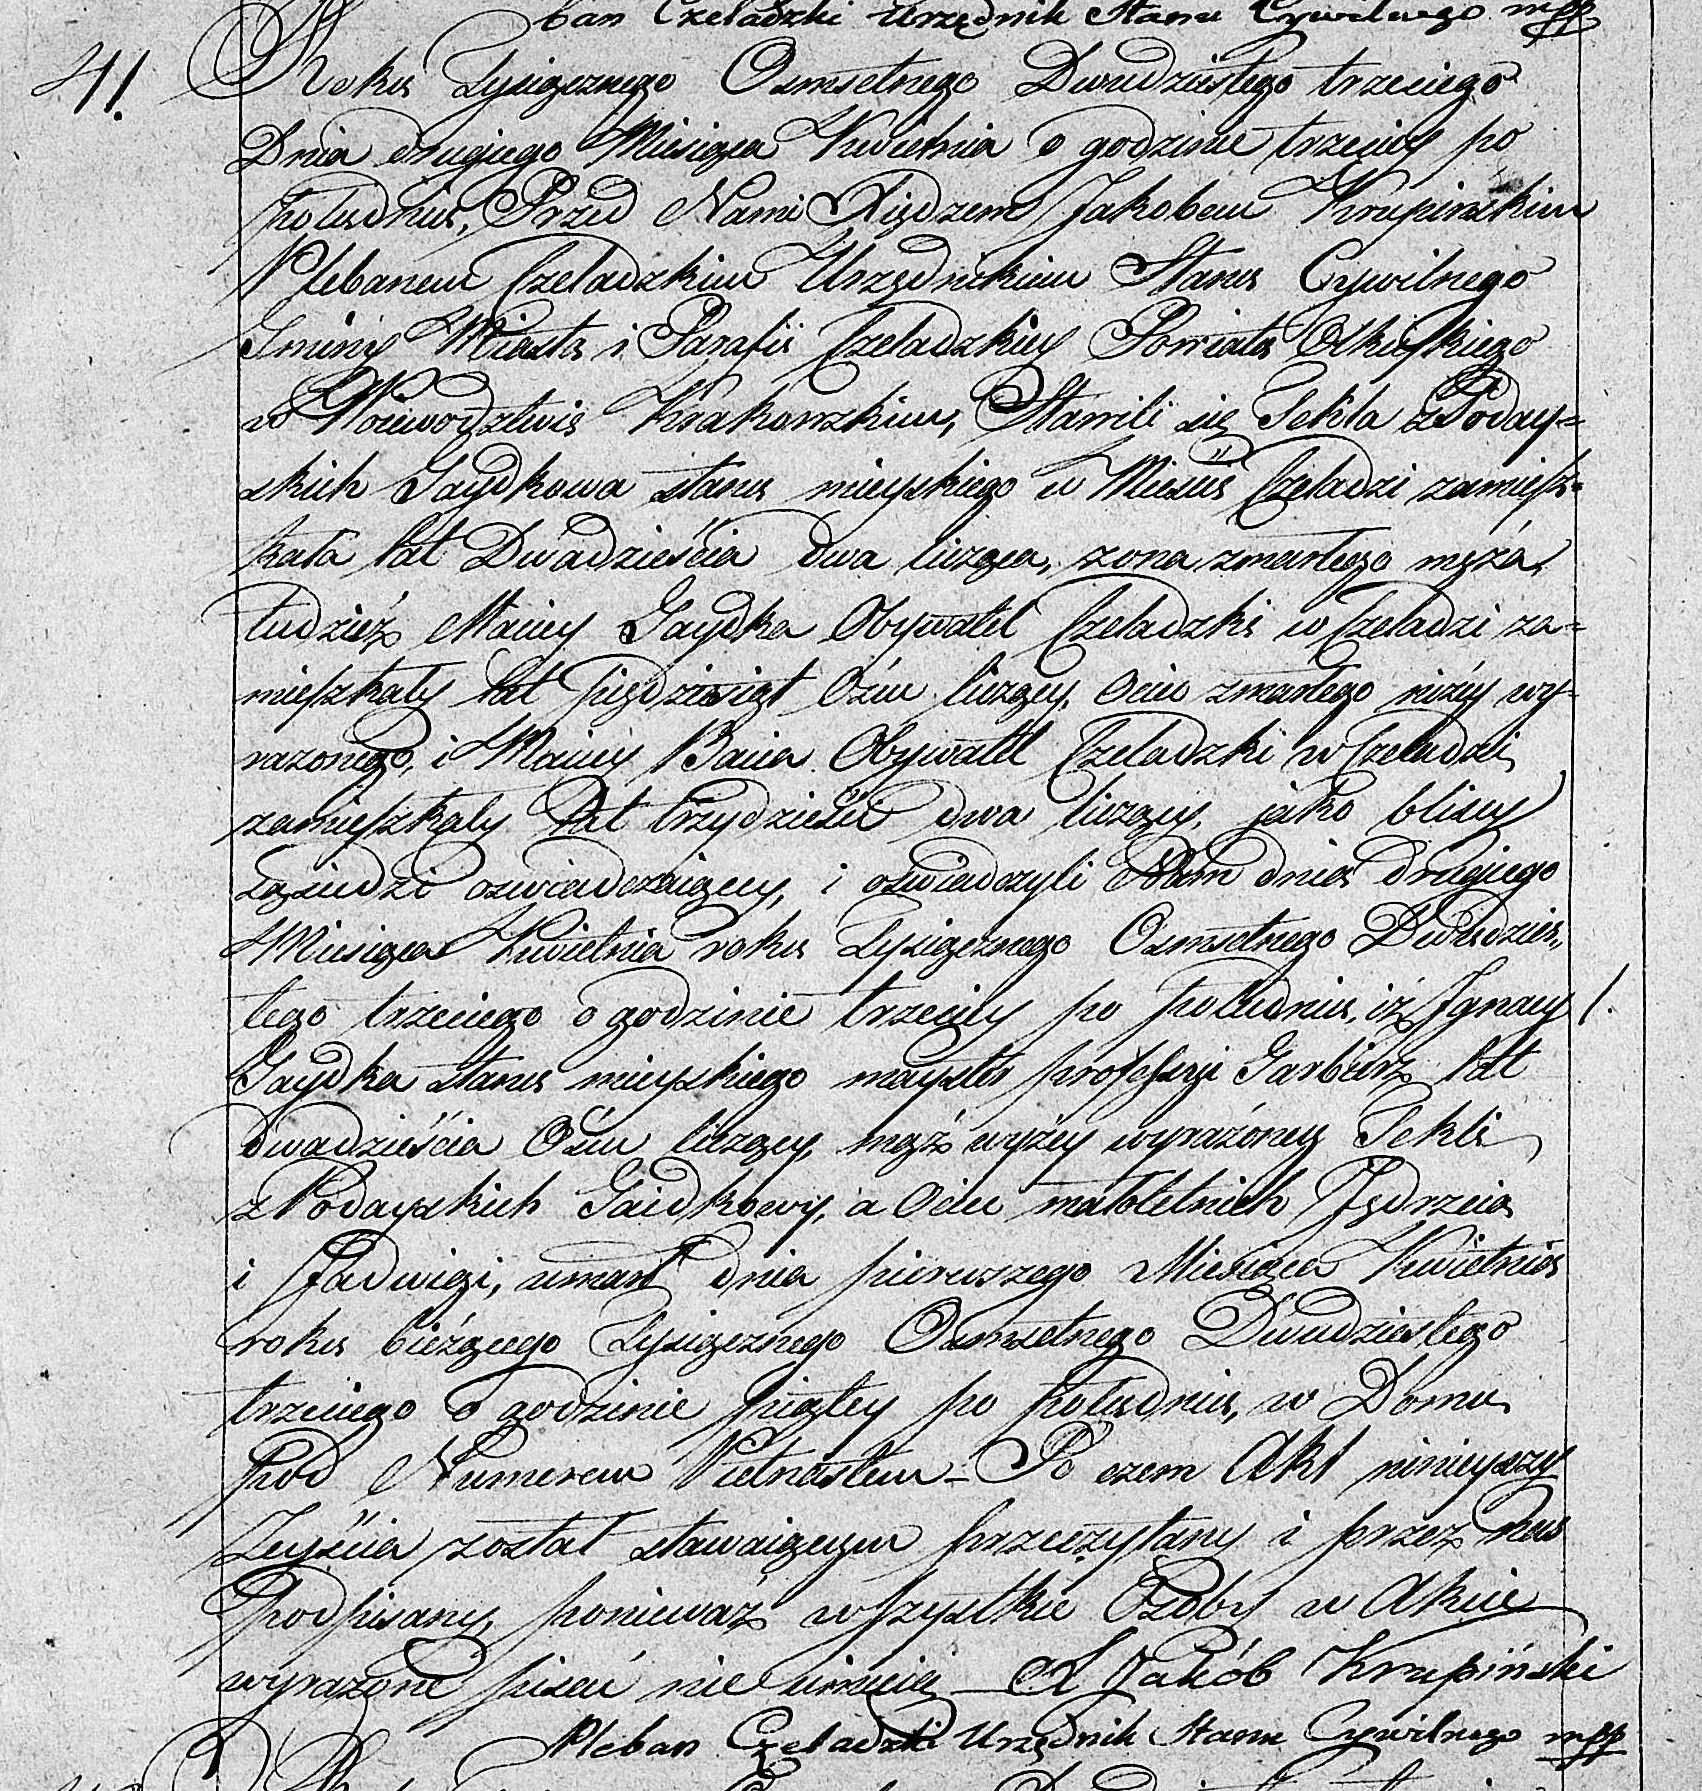 ban Czeladzki Urzędnik Stanu Cywilnego mpp
41.
Roku Tysiącznego Osmsetnego Dwudziestego trzeciego
Dnia drugiego Miesiąca Kwietnia o godzinie trzeciey po
południu, Przed Nami Xiędzem Jakobem Krupinskim
Plebanem Czeladzkim Urzędnikiem Stanu Cywilnego
Gminy Miasta i Parafii Czeladzkiey Powiatu Olkuskiego
w Woiewodztwie Krakowskim, Stawili się Tekla z Poday=
skich Gaydkowa stanu mieyskiego w Mieście Czeladzi zamiesz=
kała lat Dwadzieścia dwa licząca, zona zmarłego męża,
tudzież Maciey Gaydka Obywatel Czeladzki w Czeladzi za=
mieszkały lat piędziesiąt Ośm liczący, Ociec zmarłego niżey wy=
razonego, i Maciey Bacia Obywatel Czeladzki w Czeladzi
zamieszkały lat trzydzieści dwa liczący, jako bliscy
Sąsiedzi oswiadczaiący, i oświadczyli Nam dnia drugiego
Miesiąca Kwietnia roku Tysiącznego Osmsetnego Dwudzies,
tego trzeciego o godzinie trzeciey po południu, iż Jgnacy /.
Gaydka stanu mieyskiego mayster professyi Garbarz lat
Dwadzieścia Ośm liczący, mąż wyżey wyrażoney Tekli
z Podayskich Gaidkowy, a Ociec małoletnich Jędrzeia
i Jadwigi, umarł dnia pierwszego Miesiąca Kwietnia
roku bieżącego Tysiącznego Osmsetnego Dwudziestego
trzeciego o godzinie piątey po południu, w Domu
pod Numerem Pietnastem – Po czem Akt ninieyszy
Zeyścia został stawaiącym przeczytany i przez nas
podpisany, ponieważ wszystkie Osoby w Akcie
wyrażone pisać nie umieią – X Jakób Krupiński
Pleban Czeladzki Urzędnik Stanu Cywilnego mpp